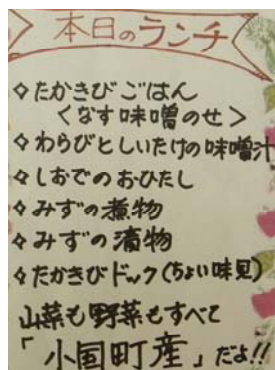 本日のランチ
◇たかきびごはん
＜なす味噌のせ＞
◇わらびとしいたけの味噌汁
◇しおでのおひたし
◇みずの煮物
◇みずの漬物
◇たかきびドック(ちょい味見)
山菜も野菜もすべて
「小国町産」だよ!!